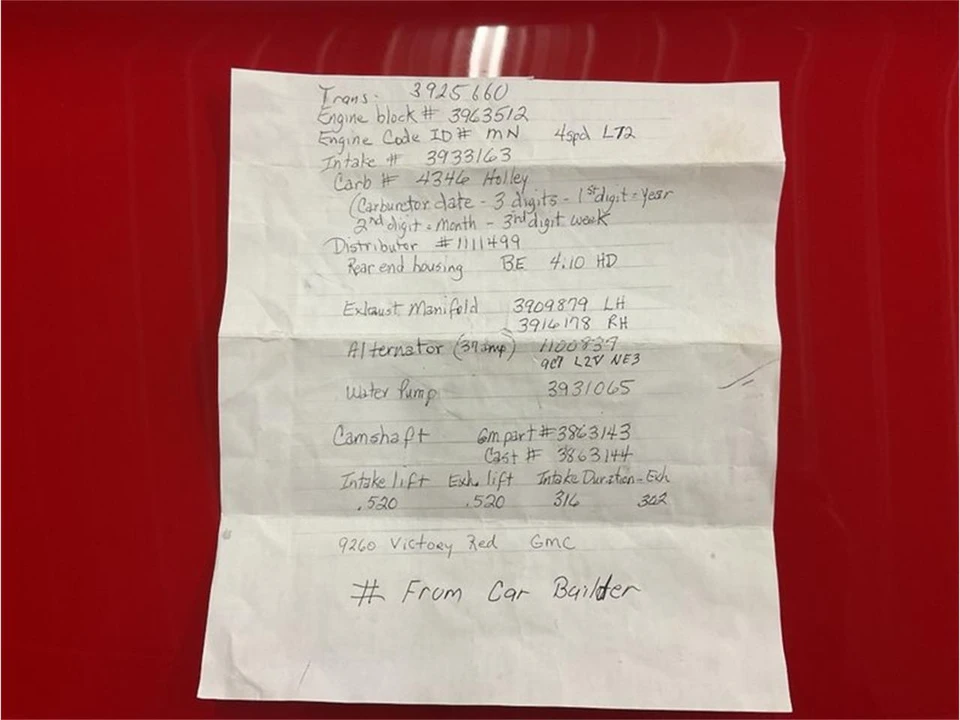 Trans. 3925660
Engine block # 3963512
Engine Code ID# MN 4spd LT2
Intake # 3933163
Carb # 4346 Holley
(Carburetor date - 3 digits - 1st digit = year
2nd digit = month - 3rd digit week
Distributor #1111499
Rear end housing BE 4.10 HD
Exhaust Manifold 3909879 LH
3916178 RH
Alternator (37amp) 1100837
9C7 L2V NE3
Water Pump 3931065
Camshaft Gm part # 3863143
Cast # 3863144
Intake lift Exh. lift Intake Duration - Exh
.520 .520 316 302
9260 Victory Red GMC
# From Car Builder